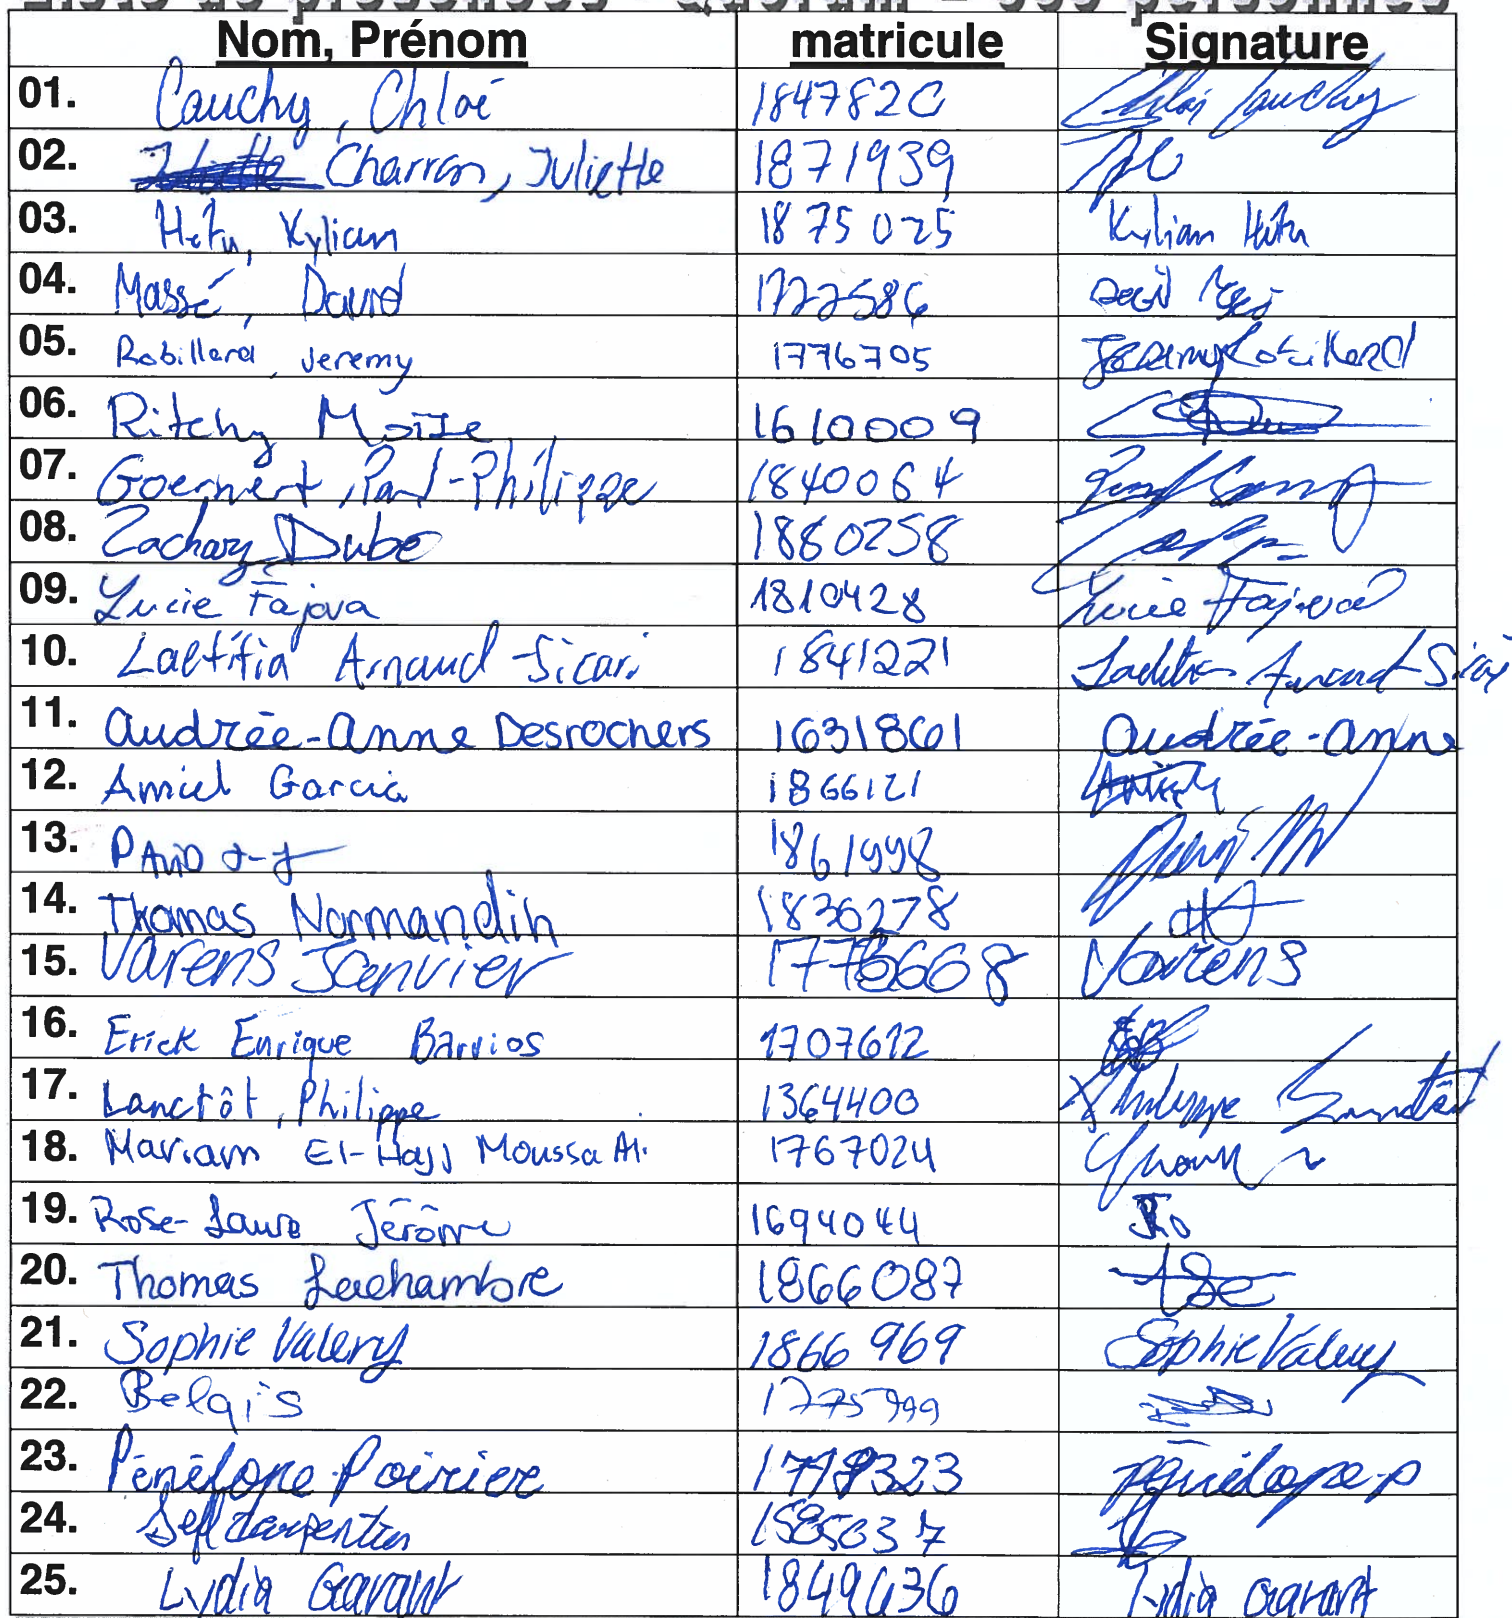 Liste de présences - Quorum = 300 personnes
Nom, Prénom matricule Signature
01. Cauchy, Chloé 1847820 Chloé Cauchy
02. Charron, Juliette 1871939
03. Hétu, Kylian 1875025 Kylian Hétu
04. Massé, David 1722586
05. Robillard, Jeremy 1776705 Jeremy Robillard
06. Ritchy Moïse 1610009
07. Goernert, Paul-Philippe 1840064
08. Zachary Dubé 1860258
09. Lucie Fajova 1810428 Lucie Fajova
10. Laetitia Arnaud-Sicari 1841221 Laetitia Arnaud-Sicari
11. Audrée-Anne Desrochers 1631861 Audrée-Anne
12. Amiel Garcia 1866121
13. 1861998
14. Thomas Normandin 1836278
15. Varens Janvier Varens
16. Erick Enrique Barrios 1707612
17. Lanctôt, Philippe 1364400 Philippe Lanctôt
18. Mariam El-Hajj Moussa Ali 1767024
19. Rose-Laure Jérôme 1694044
20. Thomas Lachambre 1866087
21. Sophie Valery 1866969 Sophie Valery
22. Belqis 1775999
23. Pénélope Poirier Pénélope P
24.
25. Lydia Gavant 1849636 Lydia Gavant